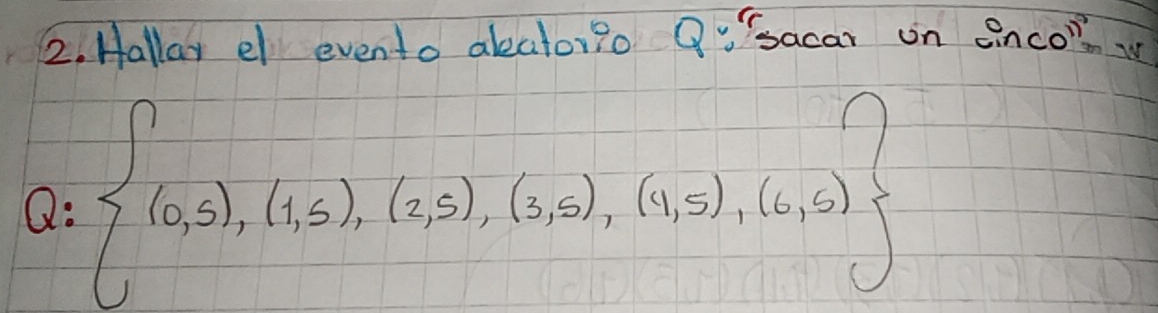 2. Hallar el evento aleatorio Q: "sacar un cinco"
Q: { (0,5), (1,5), (2,5), (3,5), (4,5), (6,5) }